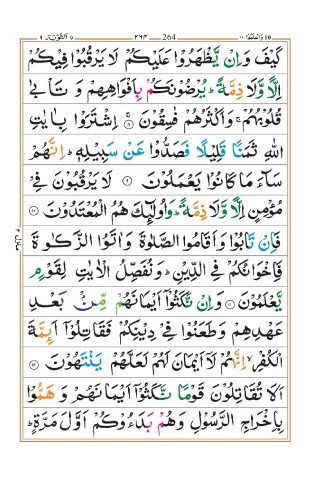 التوبة ٩ ٢٦٤ 264 واعلموا ١٠
كَيْفَ وَاِنْ يَّظْهَرُوْا عَلَيْكُمْ لَا يَرْقُبُوْا فِيْكُمْ
اِلًّا وَّلَا ذِمَّةً ؕ يُرْضُوْنَكُمْ بِاَفْوَاهِهِمْ وَ تَاْبٰى
قُلُوْبُهُمْ ۚ وَاَكْثَرُهُمْ فٰسِقُوْنَ ۚ ﴿۸﴾ اِشْتَرَوْا بِاٰيٰتِ
اللّٰهِ ثَمَنًا قَلِيْلًا فَصَدُّوْا عَنْ سَبِيْلِهٖ ؕ اِنَّهُمْ
سَآءَ مَا كَانُوْا يَعْمَلُوْنَ ﴿۹﴾ لَا يَرْقُبُوْنَ فِيْ
مُؤْمِنٍ اِلًّا وَّلَا ذِمَّةً ؕ وَاُولٰٓئِكَ هُمُ الْمُعْتَدُوْنَ ﴿۱۰﴾
فَاِنْ تَابُوْا وَاَقَامُوا الصَّلٰوةَ وَاٰتَوُا الزَّكٰوةَ
فَاِخْوَانُكُمْ فِي الدِّيْنِ ؕ وَنُفَصِّلُ الْاٰيٰتِ لِقَوْمٍ
يَّعْلَمُوْنَ ﴿۱۱﴾ وَاِنْ نَّكَثُوْٓا اَيْمَانَهُمْ مِّنْۢ بَعْدِ
عَهْدِهِمْ وَطَعَنُوْا فِيْ دِيْنِكُمْ فَقَاتِلُوْٓا اَىِٕمَّةَ
الْكُفْرِ ۙ اِنَّهُمْ لَآ اَيْمَانَ لَهُمْ لَعَلَّهُمْ يَنْتَهُوْنَ ﴿۱۲﴾
اَلَا تُقَاتِلُوْنَ قَوْمًا نَّكَثُوْٓا اَيْمَانَهُمْ وَ هَمُّوْا
بِاِخْرَاجِ الرَّسُوْلِ وَهُمْ بَدَءُوْكُمْ اَوَّلَ مَرَّةٍ ؕ